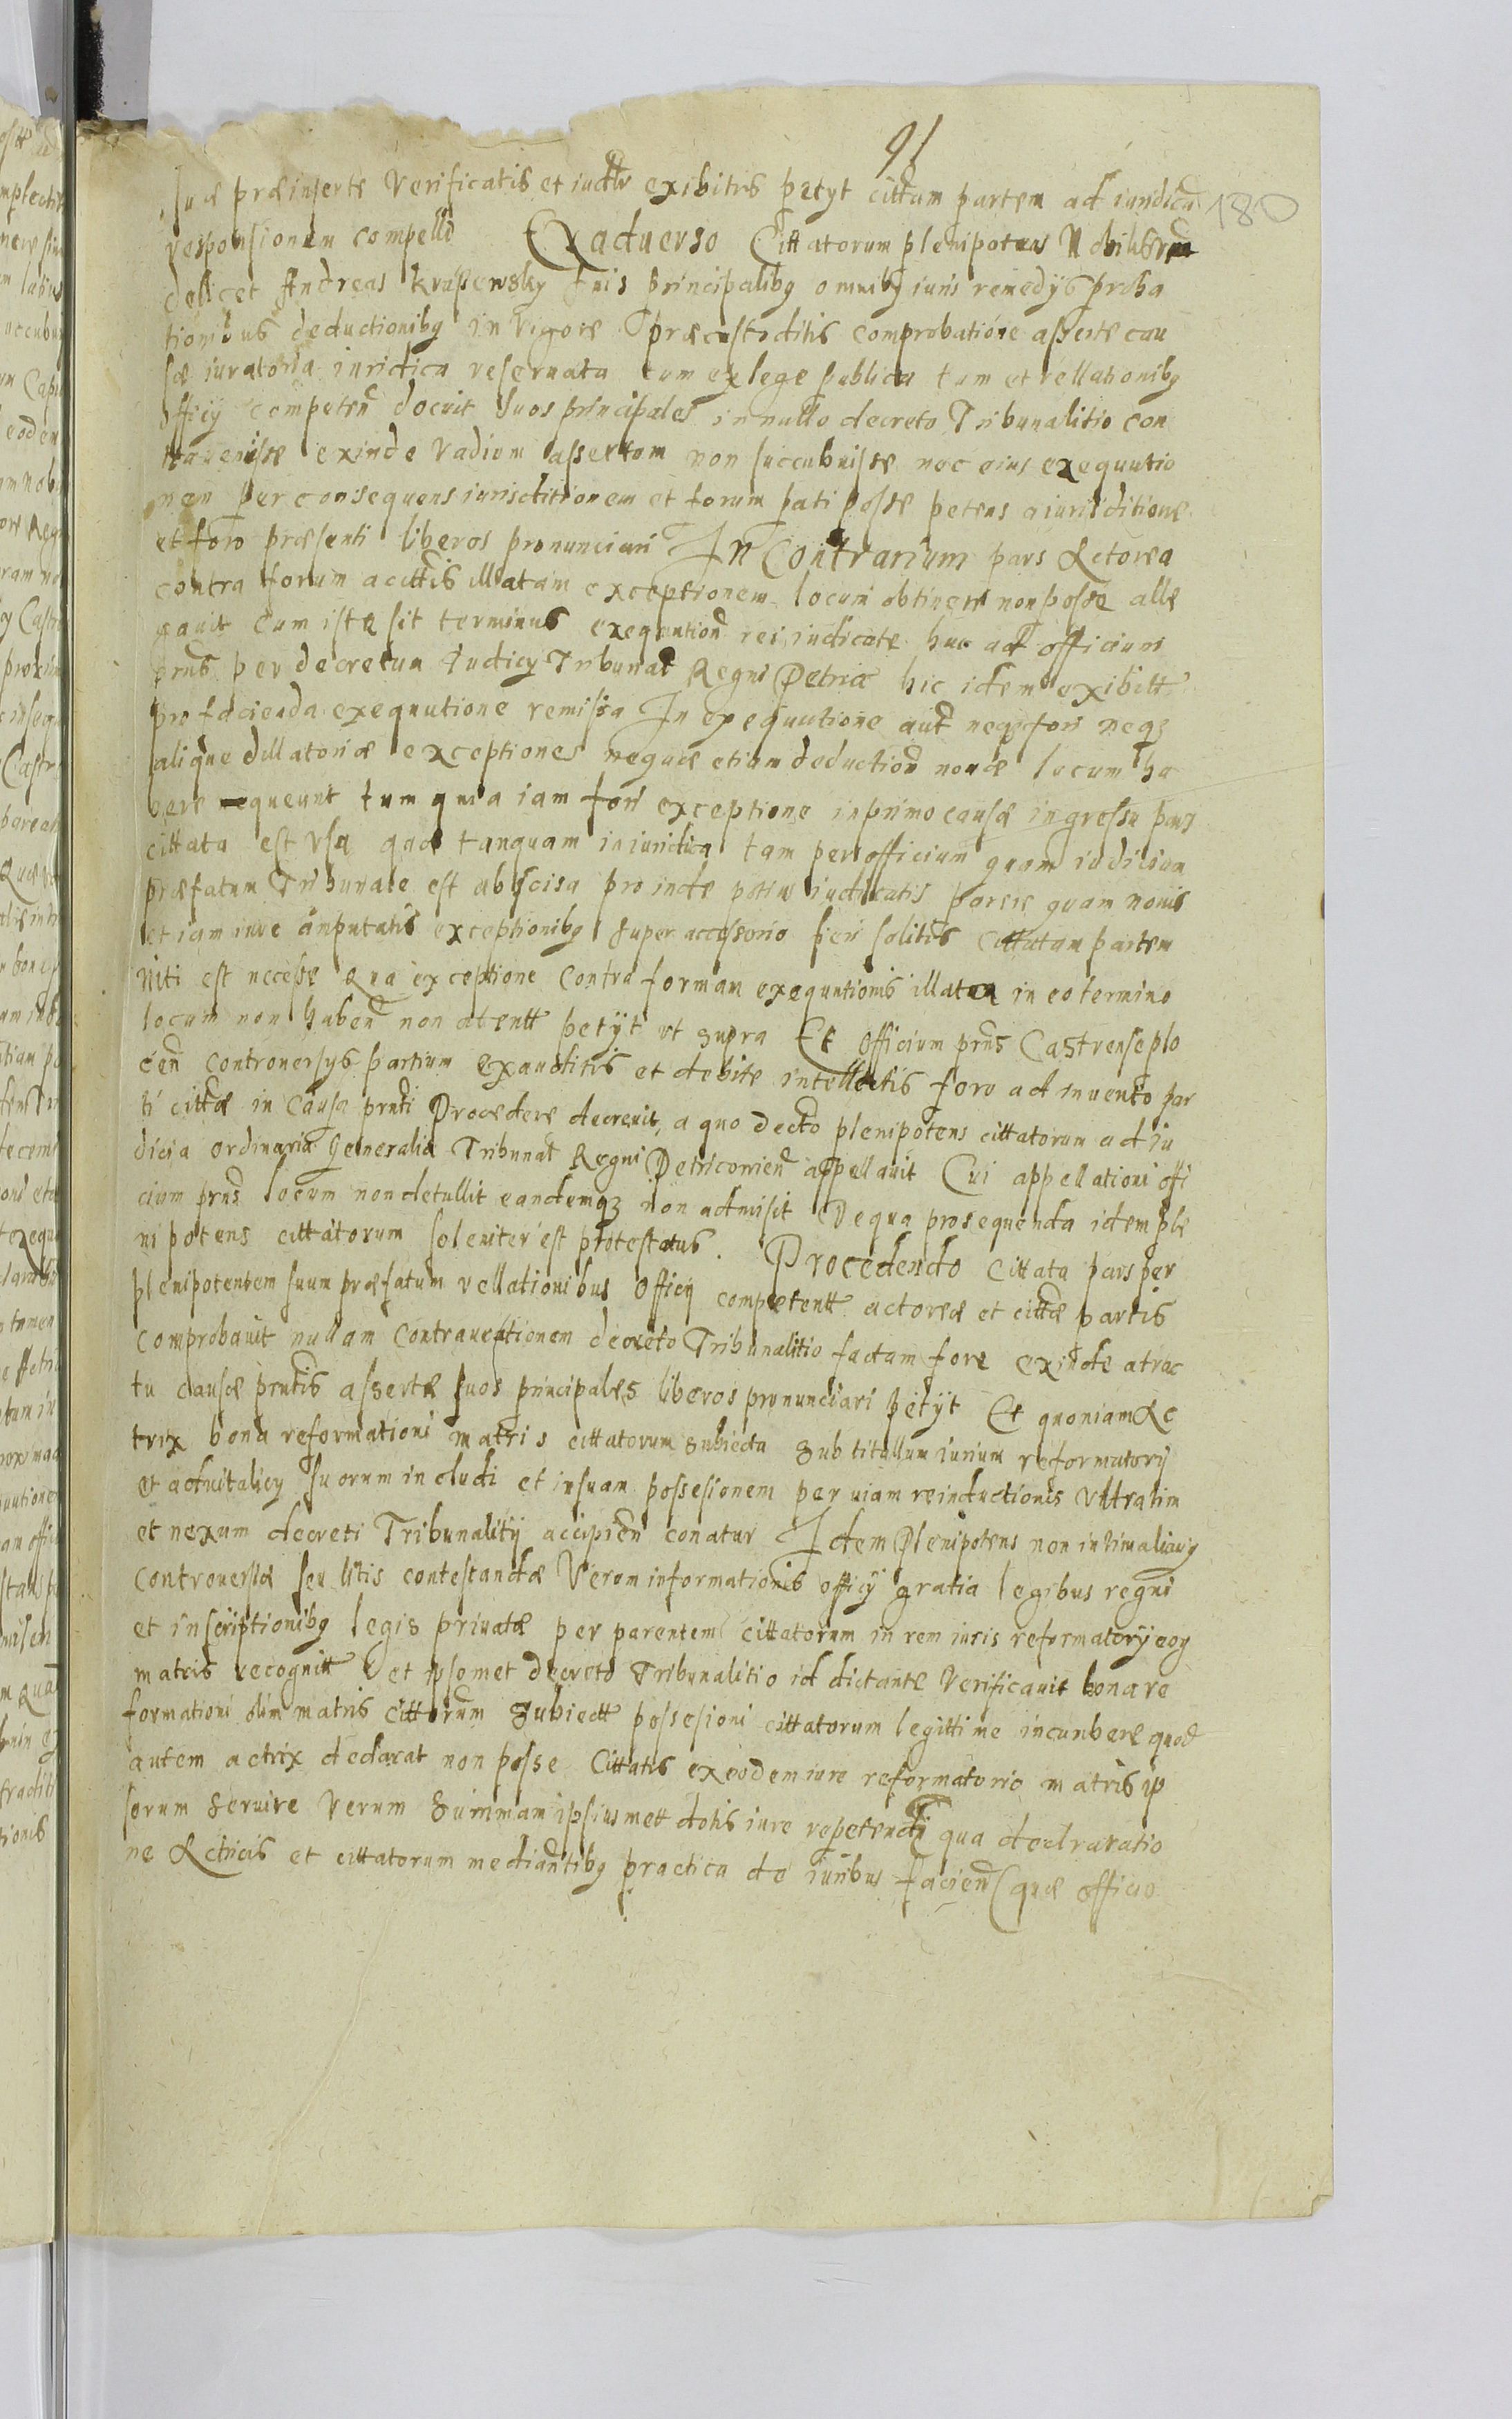 91
180
suæ præinserte Verificatis et iuditr exibitis petyt cittam partem ad iuridica
responsionem compelli Ex aduerso Cittatorum plenipotens Nobilis
delicet Andreas Krupsewsky suis principalibg omnibg iuris remedÿs proba
tionibus deductionibg in vigore præcustoditis comprobatione asserte cau
sæ iuratoria iuridica reseruata tum ex lege publica tum et rellationibg
officÿ competen docuit suos principales in nullo decreto Tribunalitio con
trauenisse exinde Vadium assertum non succubuisse nec eius exequutio
nem per consequens iurisditionem et forum pati posse petens a iurisditione
et foro præsenti liberos pronunciari In Contrarium pars Actorea
contra forum a cittis illatam exceptionem locum obtinere non posse alle
gauit cum iste sit terminus exequution rei iudicate huc ad officium
prns per decretum Iudicÿ Tribunal Regni Petric hic idem exibitt
pro facienda exequutione remissa In exequutione aut neqz fori neqz
alique dillatoriæ exceptiones neque etiam deduction nouæ locum ha
bere queunt tum quia iam fori exceptione in primo causæ ingressu pars
cittata est vsa quæ tanquam iniuridica tam per officium quam iuditium
præfatum Tribunale est abscisa proinde potius iudicatis parere quam nouis
et iam iure amputatis exceptionibg super accessorio fieri solitis cittatam partem
niti est necesse Qua exceptione contra formam exequutionis illata in eo termino
locum non haben non atentt petÿt vt supra Et officium prns Castrense plo
cen controuersÿs partium exauditis et debite intellectis foro ad inuento par
ti cittæ in causa prnti Procedere decreuit, a quo decto plenipotens cittatorum ad iu
dicia ordinaria Generalia Tribunal Regni Petricouien appellauit Cui appellationi offi
cium prns locum non detullit eandemqz non admisit De qua prosequenda idem ple
nipotens cittatorum soleniter est protestatus. Procedendo Cittata pars per
plenipotentem suum præfatum rellationibus officÿ competentt actoreæ et cittæ partis
comprobauit nullam contrauentionem decreto Tribunalitio factam fore exinde a trac
tu causæ prntis assertæ suos principales liberos pronunciari petÿt Et quoniam Ac
trix bona reformationi matris cittatorum subiecta sub titullum iurium reformatorÿ
et aduitalicÿ suorum includi et in suam possesionem per uiam reinductionis Vltra uim
et nexum decreti Tribunalitÿ accipien conatur Idem Plenipotens non in uim alicuig
controuersiæ seu litis contestandæ Verum informationis officÿ gratia legibus regni
et inscriptionibg legis priuatæ per parentem cittatorum in rem iuris reformatorÿ eog
matris recognitt et ipsomet decreto Tribunalitio id dictante Verificauit bona re
formationi olim matris cittorum subiectt possesioni cittatorum legittime incunbere quod
autem actrix declarat non posse Cittatis ex eodem iure reformatorio matris ip
sorum seruire Verum summam ipsiusmett dotis iure repetendi qua declraratio
ne Actricis et cittatorum mediantibg practica de iuribus facien quæ officio